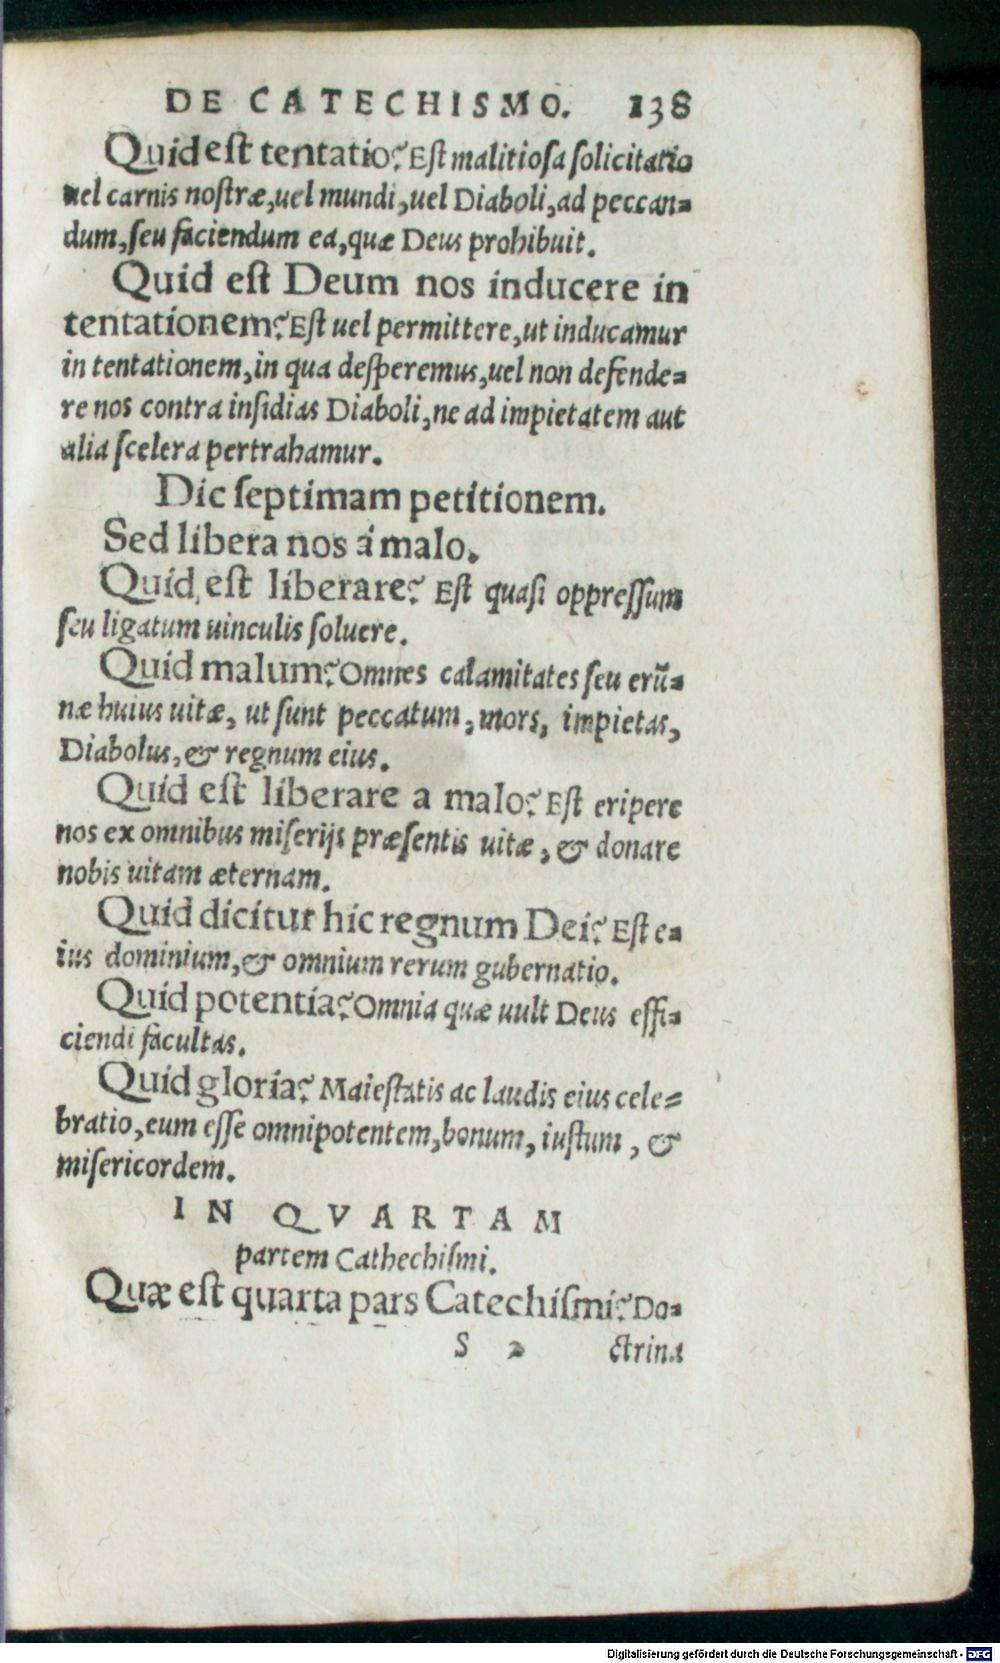 DE CATECHISMO. 138
Quid est tentatio? Est malitiosa solicitatio
uel carnis nostræ, uel mundi, uel Diaboli, ad peccan-
dum, seu faciendum ea, quæ Deus prohibuit.
Quid est Deum nos inducere in
tentationem? Est uel permittere, ut inducamur
in tentationem, in qua desperemus, uel non defende-
re nos contra insidias Diaboli, ne ad impietatem aut
alia scelera pertrahamur.
Dic septimam petitionem.
Sed libera nos á malo.
Quid est liberare? Est quasi oppressum
seu ligatum uinculis soluere.
Quid malum? Omnes calamitates seu erũ-
næ huius uitæ, ut sunt peccatum, mors, impietas,
Diabolus, & regnum eius.
Quid est liberare a malo? Est eripere
nos ex omnibus miserijs præsentis uitæ, & donare
nobis uitam æternam.
Quid dicitur hic regnum Dei? Est e-
ius dominium, & omnium rerum gubernatio.
Quid potentia? Omnia quæ uult Deus effi-
ciendi facultas.
Quid gloria? Maiestatis ac laudis eius cele-
bratio, eum esse omnipotentem, bonum, iustum, &
misericordem.
IN QVARTAM
partem Cathechismi.
Quæ est quarta pars Catechismi? Do-
S 2 ctrina
Digitalisierung gefördert durch die Deutsche Forschungsgemeinschaft - DFG